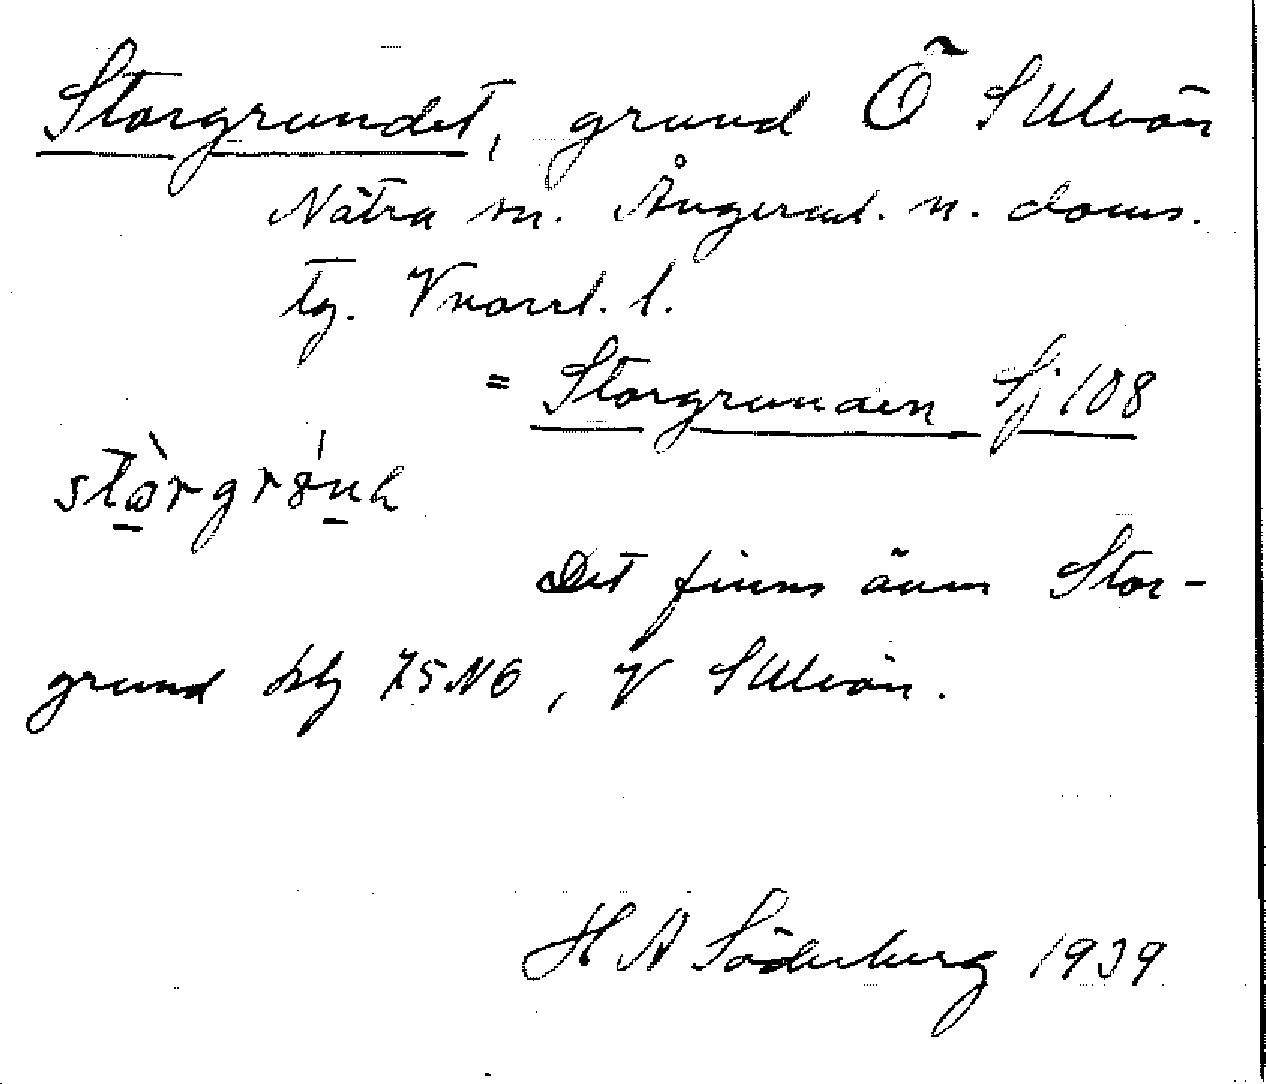 Storgrundet, grund Ö S Ulvön
Nätra sn. Ångerml. n. doms.
tg. Vnorrl. l.
= Storgrunden Sj 108
Det finns även Stor-
grund blj 75 NO, V S Ulvön.
H A Söderberg 1939